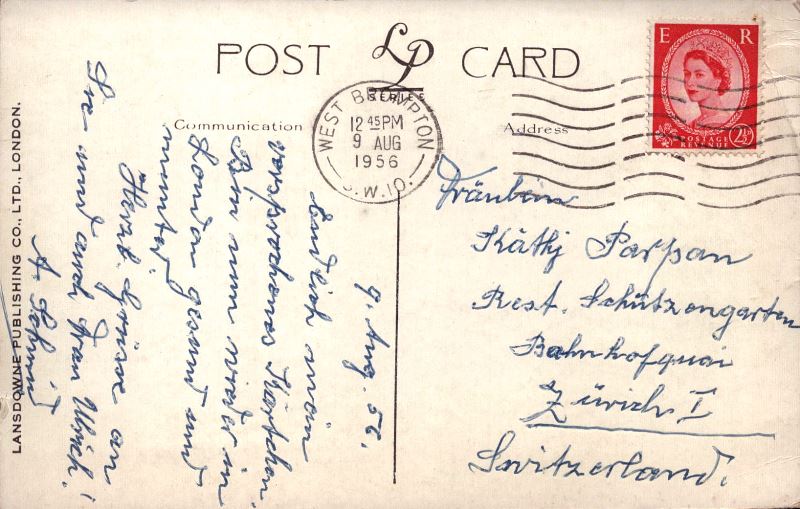 POST CARD
LP
SERIES
Communication
Address
WEST BROMPTON
12 45 PM
9 AUG
1956
S.W.10.
E R
POSTAGE
REVENUE
2½D
9. Aug. 56.
Endlich mein
versprochenes Kärtchen.
Bin nun wieder in
London gesund und
munter.
Herzl. Grüsse an
Sie und auch Frau Ulrich!
A. Schmid
Fräulein
Käthj Parpan
Rest. Schützengarten
Bahnhofquai
Zürich I
Switzerland.
LANSDOWNE PUBLISHING CO., LTD., LONDON.